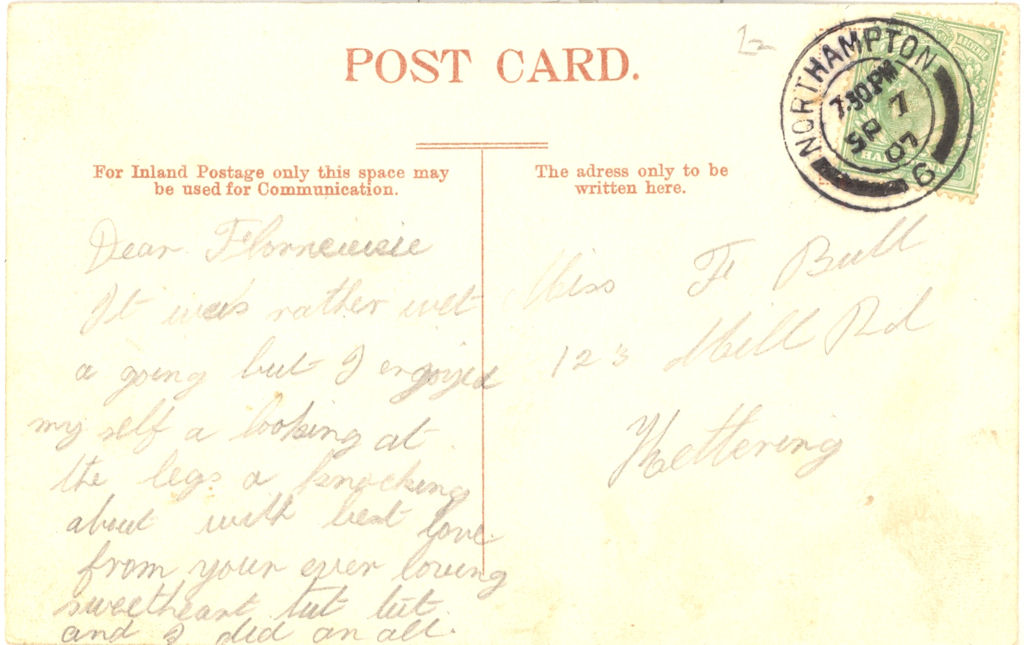 POST CARD.
NORTHAMPTON
7.30PM
7
SP
07
6
HALFPENNY
For Inland Postage only this space may
be used for Communication.
The adress only to be
written here.
Dear
It was rather wet
a going but I engoyed
my self a looking at
the legs a knocking
about with best love.
from your ever loving
sweetheart tut tut.
and I did an all.
Miss F Bull
123 Mill Rd
Kettering